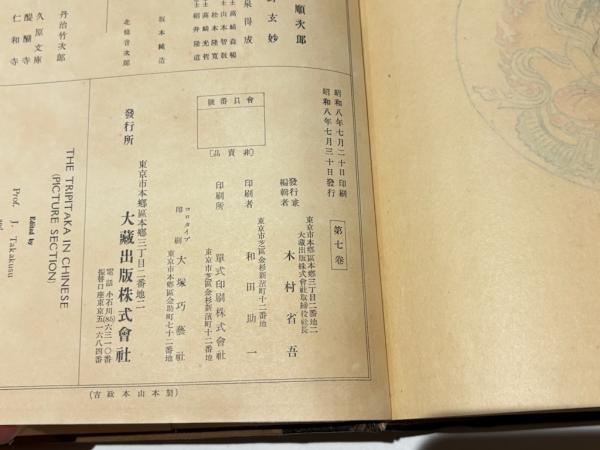 昭和八年七月二十日印刷
昭和八年七月三十日發行
第七卷
東京市本鄕區本鄕三丁目二番地二
大藏出版株式會社取締役社長
發行兼
編輯者
木村省吾
東京市芝區金杉新濱町十二番地
印刷者
和田助一
印刷所
單式印刷株式會社
東京市芝區金杉新濱町十二番地
コロタイプ
印刷
大塚巧藝社
東京市本鄕區金助町七十二番地
會員番號
(非賣品)
發行所
東京市本鄕區本鄕三丁目二番地二
大藏出版株式會社
電話小石川(85)六三一〇番
振替口座東京五一六八四番
(製本山本政吉)
順次郎
玄妙
泉得成
士高崎直暢
士山本智敎
松本隆寬
士高崎光哲
士紺井隆道
坂本純造
北條音次郎
丹治竹次郎
久原文庫
醍醐寺
仁和寺
THE TRIPITAKA IN CHINESE
(PICTURE SECTION)
Edited by
Prof. J. Takakusu
and